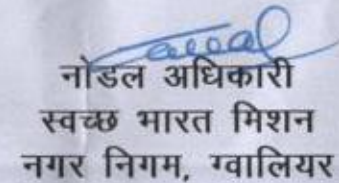 नोडल अधिकारी
स्वच्छ भारत मिशन
नगर निगम, ग्वालियर